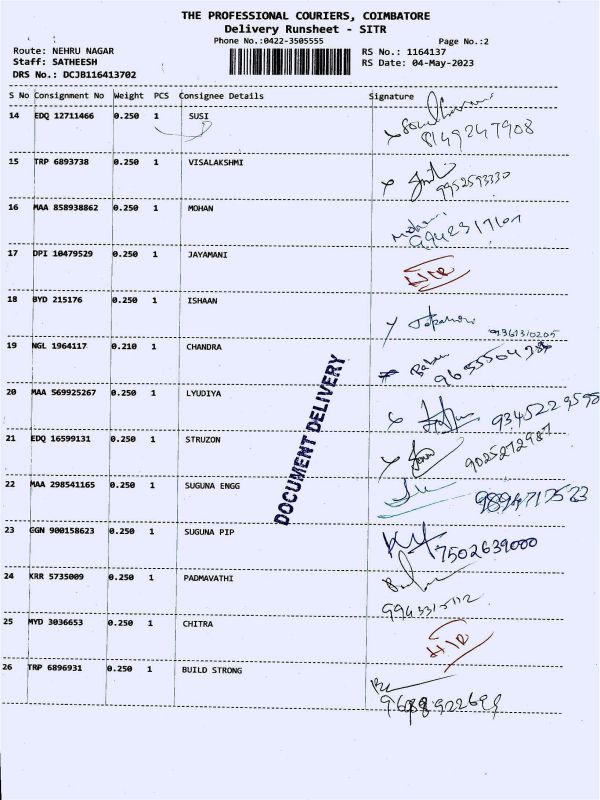 THE PROFESSIONAL COURIERS, COIMBATORE
Delivery Runsheet - SITR
Phone No.:0422-3505555 Page No.:2
Route: NEHRU NAGAR RS No.: 1164137
Staff: SATHEESH RS Date: 04-May-2023
DRS No.: DCJB116413702
S No Consignment No Weight PCS Consignee Details Signature
14 EDQ 12711466 0.250 1 SUSI
8149247908
15 TRP 6893738 0.250 1 VISALAKSHMI
9952593330
16 MAA 858938862 0.250 1 MOHAN
17 DPI 10479529 0.250 1 JAYAMANI
18 BYD 215176 0.250 1 ISHAAN
9361310205
19 NGL 1964117 0.210 1 CHANDRA
20 MAA 569925267 0.250 1 LYUDIYA
9345229598
21 EDQ 16599131 0.250 1 STRUZON
9025272987
22 MAA 298541165 0.250 1 SUGUNA ENGG
9894717523
23 GGN 900158623 0.250 1 SUGUNA PIP
7502639000
24 KRR 5735009 0.250 1 PADMAVATHI
25 MYD 3036653 0.250 1 CHITRA
26 TRP 6896931 0.250 1 BUILD STRONG
DOCUMENT DELIVERY